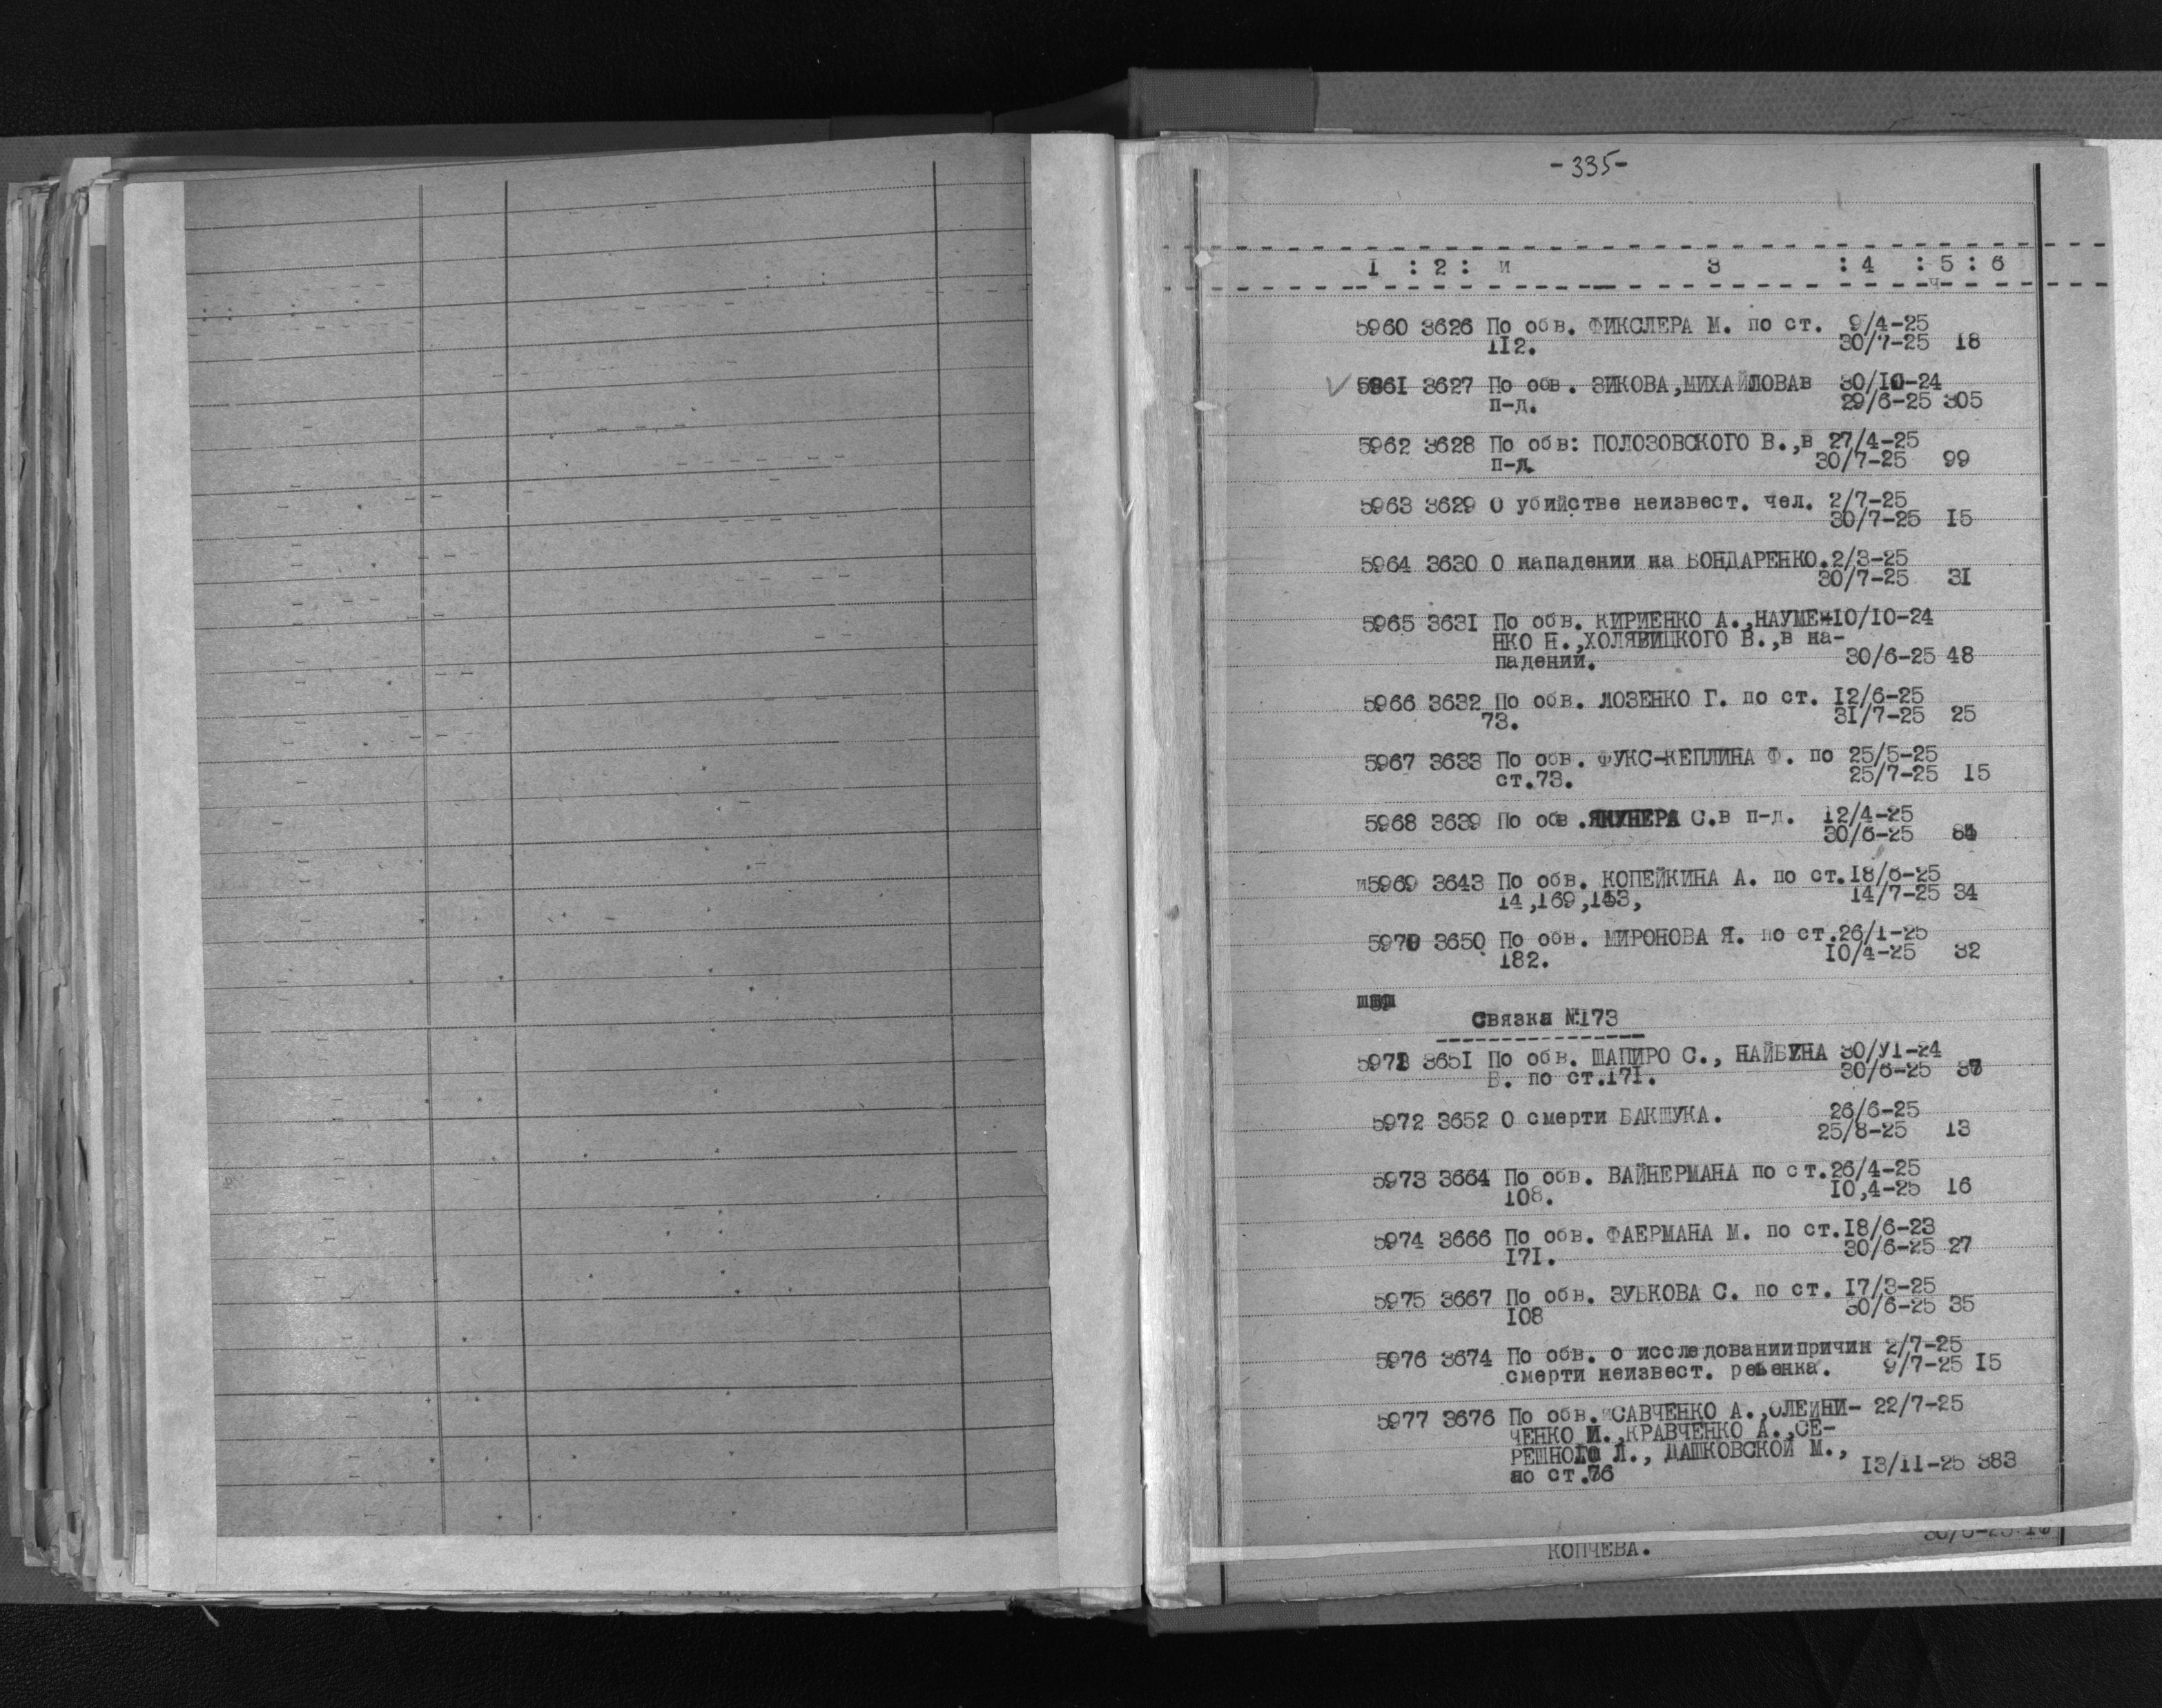 -335-
1 : 2 : и 3 : 4 : 5 : 6
5960 3626 По обв. ФИКСЛЕРА М. по ст. 9/4-25
112. 30/7-25 18
5961 3627 По обв. ЗИКОВА,МИХАЙЛОВАв 30/10-24
п-д. 29/6-25 305
5962 3628 По обв: ПОЛОЗОВСКОГО В.,в 27/4-25
п-д. 30/7-25 99
5963 3629 О убийстве неизвест. чел. 2/7-25
30/7-25 15
5964 3630 О нападении на БОНДАРЕНКО.2/3-25
30/7-25 31
5965 3631 По обв. КИРИЕНКО А.,НАУМЕ-10/10-24
НКО Н.,ХОЛЯВИЦКОГО В.,в на-
падении. 30/6-25 48
5966 3632 По обв. ЛОЗЕНКО Г. по ст. 12/6-25
73. 31/7-25 25
5967 3633 По обв. ФУКС-КЕПЛИНА Ф. по 25/5-25
ст.73. 25/7-25 15
5968 3639 По обв. ЯКУНЕРА С.в п-д. 12/4-25
30/6-25
и5969 3643 По обв. КОПЕЙКИНА А. по ст.18/6-25
14,169, 14/7-25 34
5970 3650 По обв. МИРОНОВА Я. по ст.26/1-25
182. 10/4-25 32
Связка №173
5971 3651 По обв. ШАПИРО С., НАЙБЕНА 30/У1-24
Б. по ст.171. 30/6-25
5972 3652 О смерти БАКШУКА. 26/6-25
25/8-25 13
5973 3664 По обв. ВАЙНЕРМАНА по ст.26/4-25
108. 10,4-25 16
5974 3666 По обв. ФАЕРМАНА М. по ст.18/6-23
171. 30/6-25 27
5975 3667 По обв. ЗУБКОВА С. по ст. 17/3-25
108 30/6-25 35
5976 3674 По обв. о исследованиипричин 2/7-25
смерти неизвест. ребенка. 9/7-25 15
5977 3676 По обв. САВЧЕНКО А.,ОЛЕЙНИ- 22/7-25
ЧЕНКО И.,КРАВЧЕНКО А.,СЕ-
РЕШНОГО Л., ДАШКОВСКОЙ М.,
по ст.76 13/11-25 383
КОПЧЕВА.